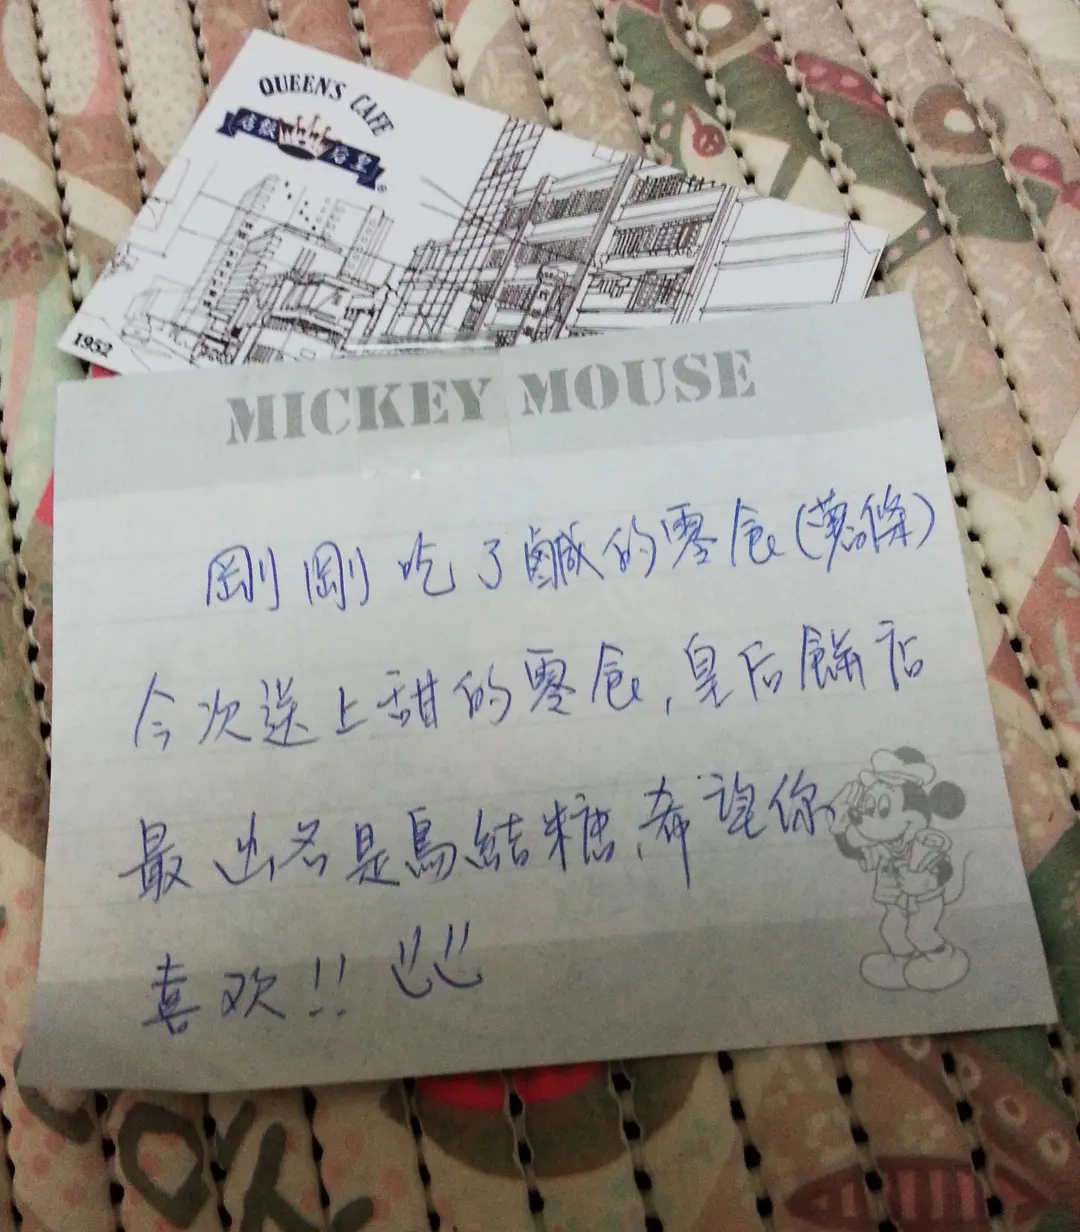 QUEEN'S CAFE
皇后飯店
1952
MICKEY MOUSE
剛剛吃了鹹的零食(薯條)
今次送上甜的零食,皇后餅店
最出名是鳥結糖,希望你
喜欢!!